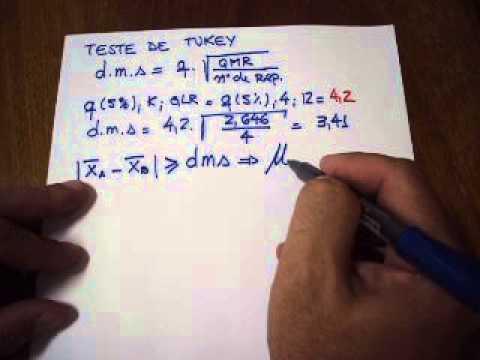 TESTE DE TUKEY
d.m.s = q. √(QMR / nº de REP.)
q (5%), K; GLR = q(5%), 4; 12 = 4,2
d.m.s = 4,2. √(2,646 / 4) = 3,41
|X̄A − X̄B| ≥ dms ⇒ μ